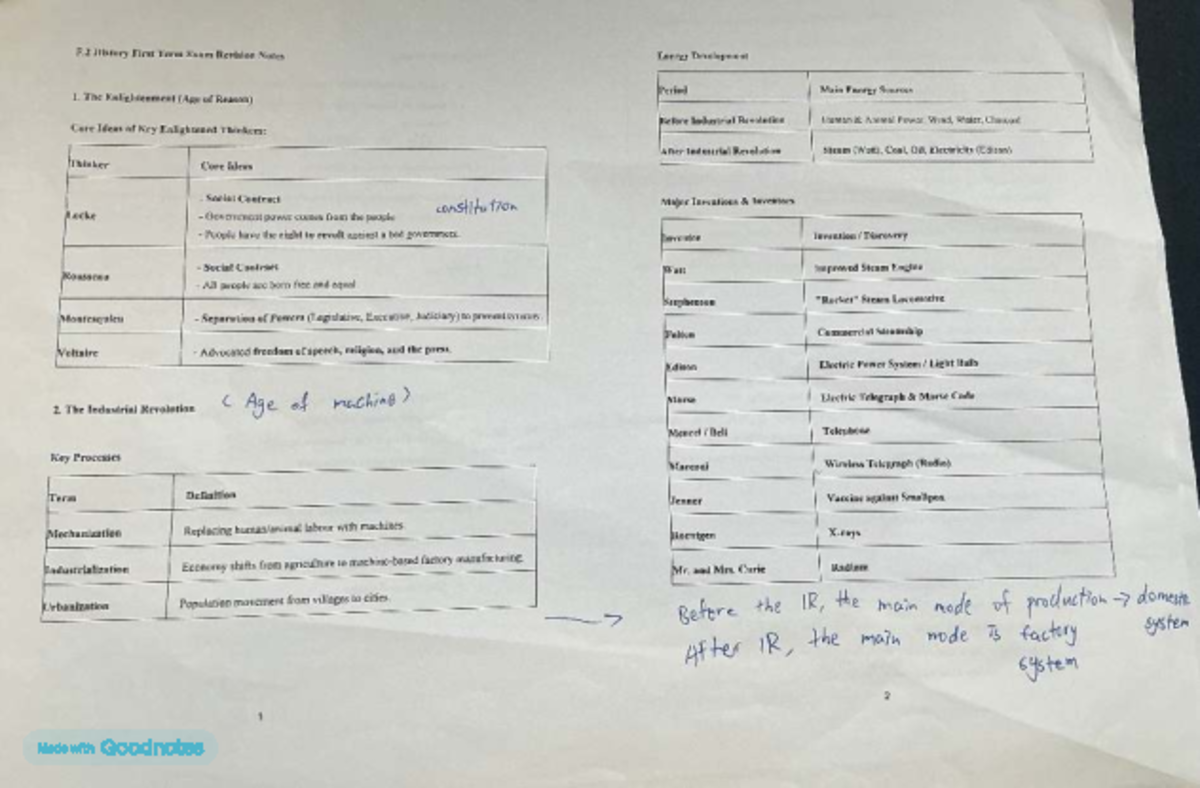 F.2 History First Term Exam Revision Notes
1. The Enlightenment (Age of Reason)
Core Ideas of Key Enlightened Thinkers:
Thinker Core Ideas
Locke
- Social Contract
- Government power comes from the people
constitution
- People have the right to revolt against a bad government.
Rousseau
- Social Contract
- All people are born free and equal
Montesquieu - Separation of Powers (Legislative, Executive, Judiciary) to prevent
Voltaire - Advocated freedom of speech, religion, and the press.
2. The Industrial Revolution (Age of machine)
Key Processes
Term Definition
Mechanization Replacing human/animal labour with machines
Industrialization Economy shifts from agriculture to machine-based factory manufacturing.
Urbanization Population movement from villages to cities.
1
Energy Development
Period Main Energy Sources
Before Industrial Revolution Human & Animal Power, Wind, Water, Charcoal
After Industrial Revolution Steam (Watt), Coal, Oil, Electricity (Edison)
Major Inventions & Inventors
Inventor Invention / Discovery
Watt Improved Steam Engine
Stephenson "Rocket" Steam Locomotive
Fulton Commercial Steamship
Edison Electric Power System / Light Bulb
Morse Electric Telegraph & Morse Code
Meucci / Bell Telephone
Marconi Wireless Telegraph (Radio)
Jenner Vaccine against Smallpox
Roentgen X-rays
Mr. and Mrs. Curie Radium
→ Before the IR, the main mode of production → domestic
system
After IR, the main mode is factory
system
2
Made with Goodnotes